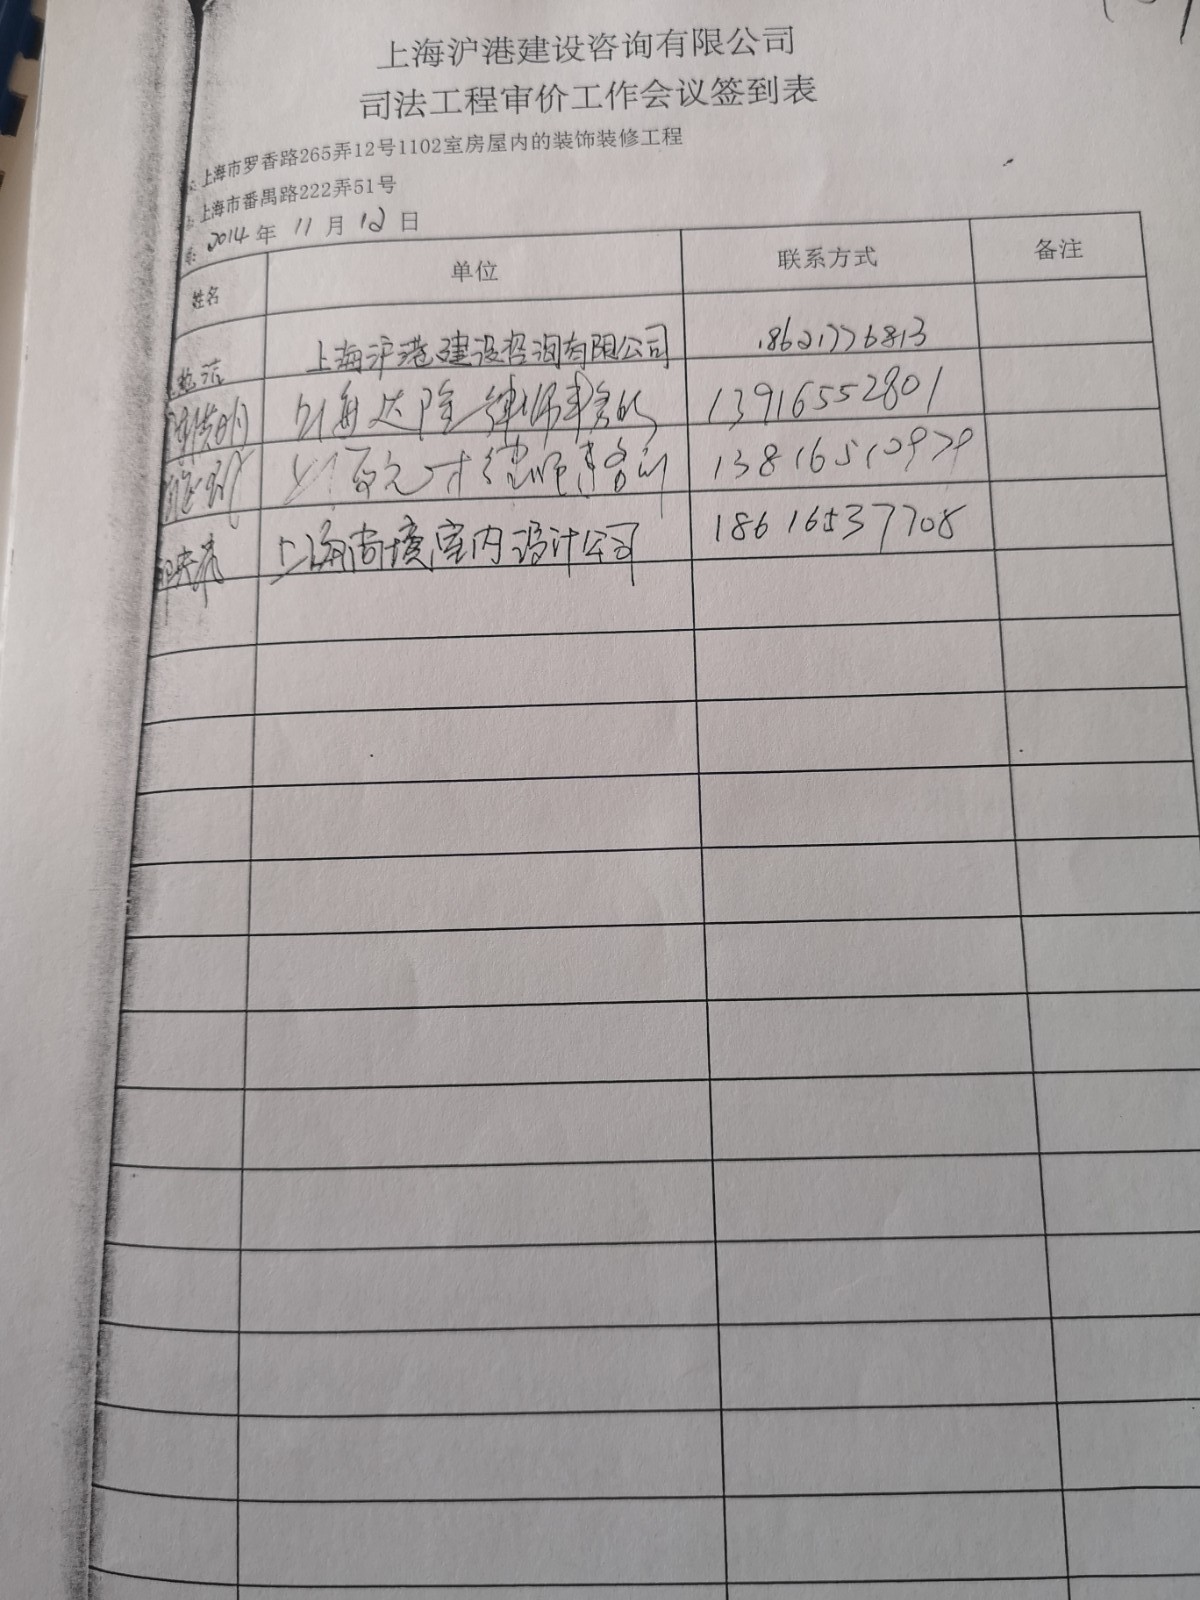 上海沪港建设咨询有限公司
司法工程审价工作会议签到表
上海市罗香路265弄12号1102室房屋内的装饰装修工程
上海市番禺路222弄51号
2014年 11月 12日
姓名 单位 联系方式 备注
上海沪港建设咨询有限公司 18621776813
上海达隆律师事务所 13916552801
律师事务所 13816510979
上海尚境室内设计公司 18616537708